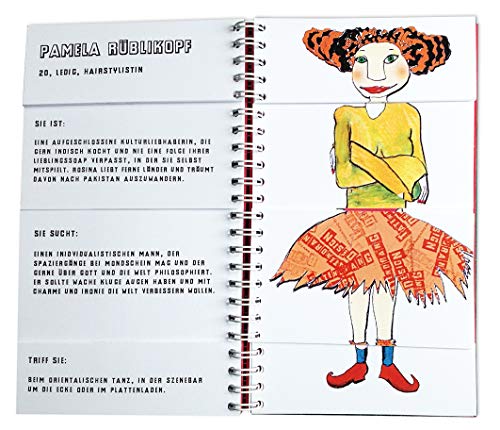 PAMELA RÜBLIKOPF
20, LEDIG, HAIRSTYLISTIN
SIE IST:
EINE AUFGESCHLOSSENE KULTURLIEBHABERIN, DIE
GERN INDISCH KOCHT UND NIE EINE FOLGE IHRER
LIEBLINGSSOAP VERPASST, IN DER SIE SELBST
MITSPIELT. ROSINA LIEBT FERNE LÄNDER UND TRÄUMT
DAVON NACH PAKISTAN AUSZUWANDERN.
SIE SUCHT:
EINEN INIDVIDUALISTISCHEN MANN, DER
SPAZIERGÄNGE BEI MONDSCHEIN MAG UND DER
GERNE ÜBER GOTT UND DIE WELT PHILOSOPHIERT.
ER SOLLTE WACHE KLUGE AUGEN HABEN UND MIT
CHARME UND IRONIE DIE WELT VERBESSERN WOLLEN.
TRIFF SIE:
BEIM ORIENTALISCHEN TANZ, IN DER SZENEBAR
UM DIE ECKE ODER IM PLATTENLADEN.